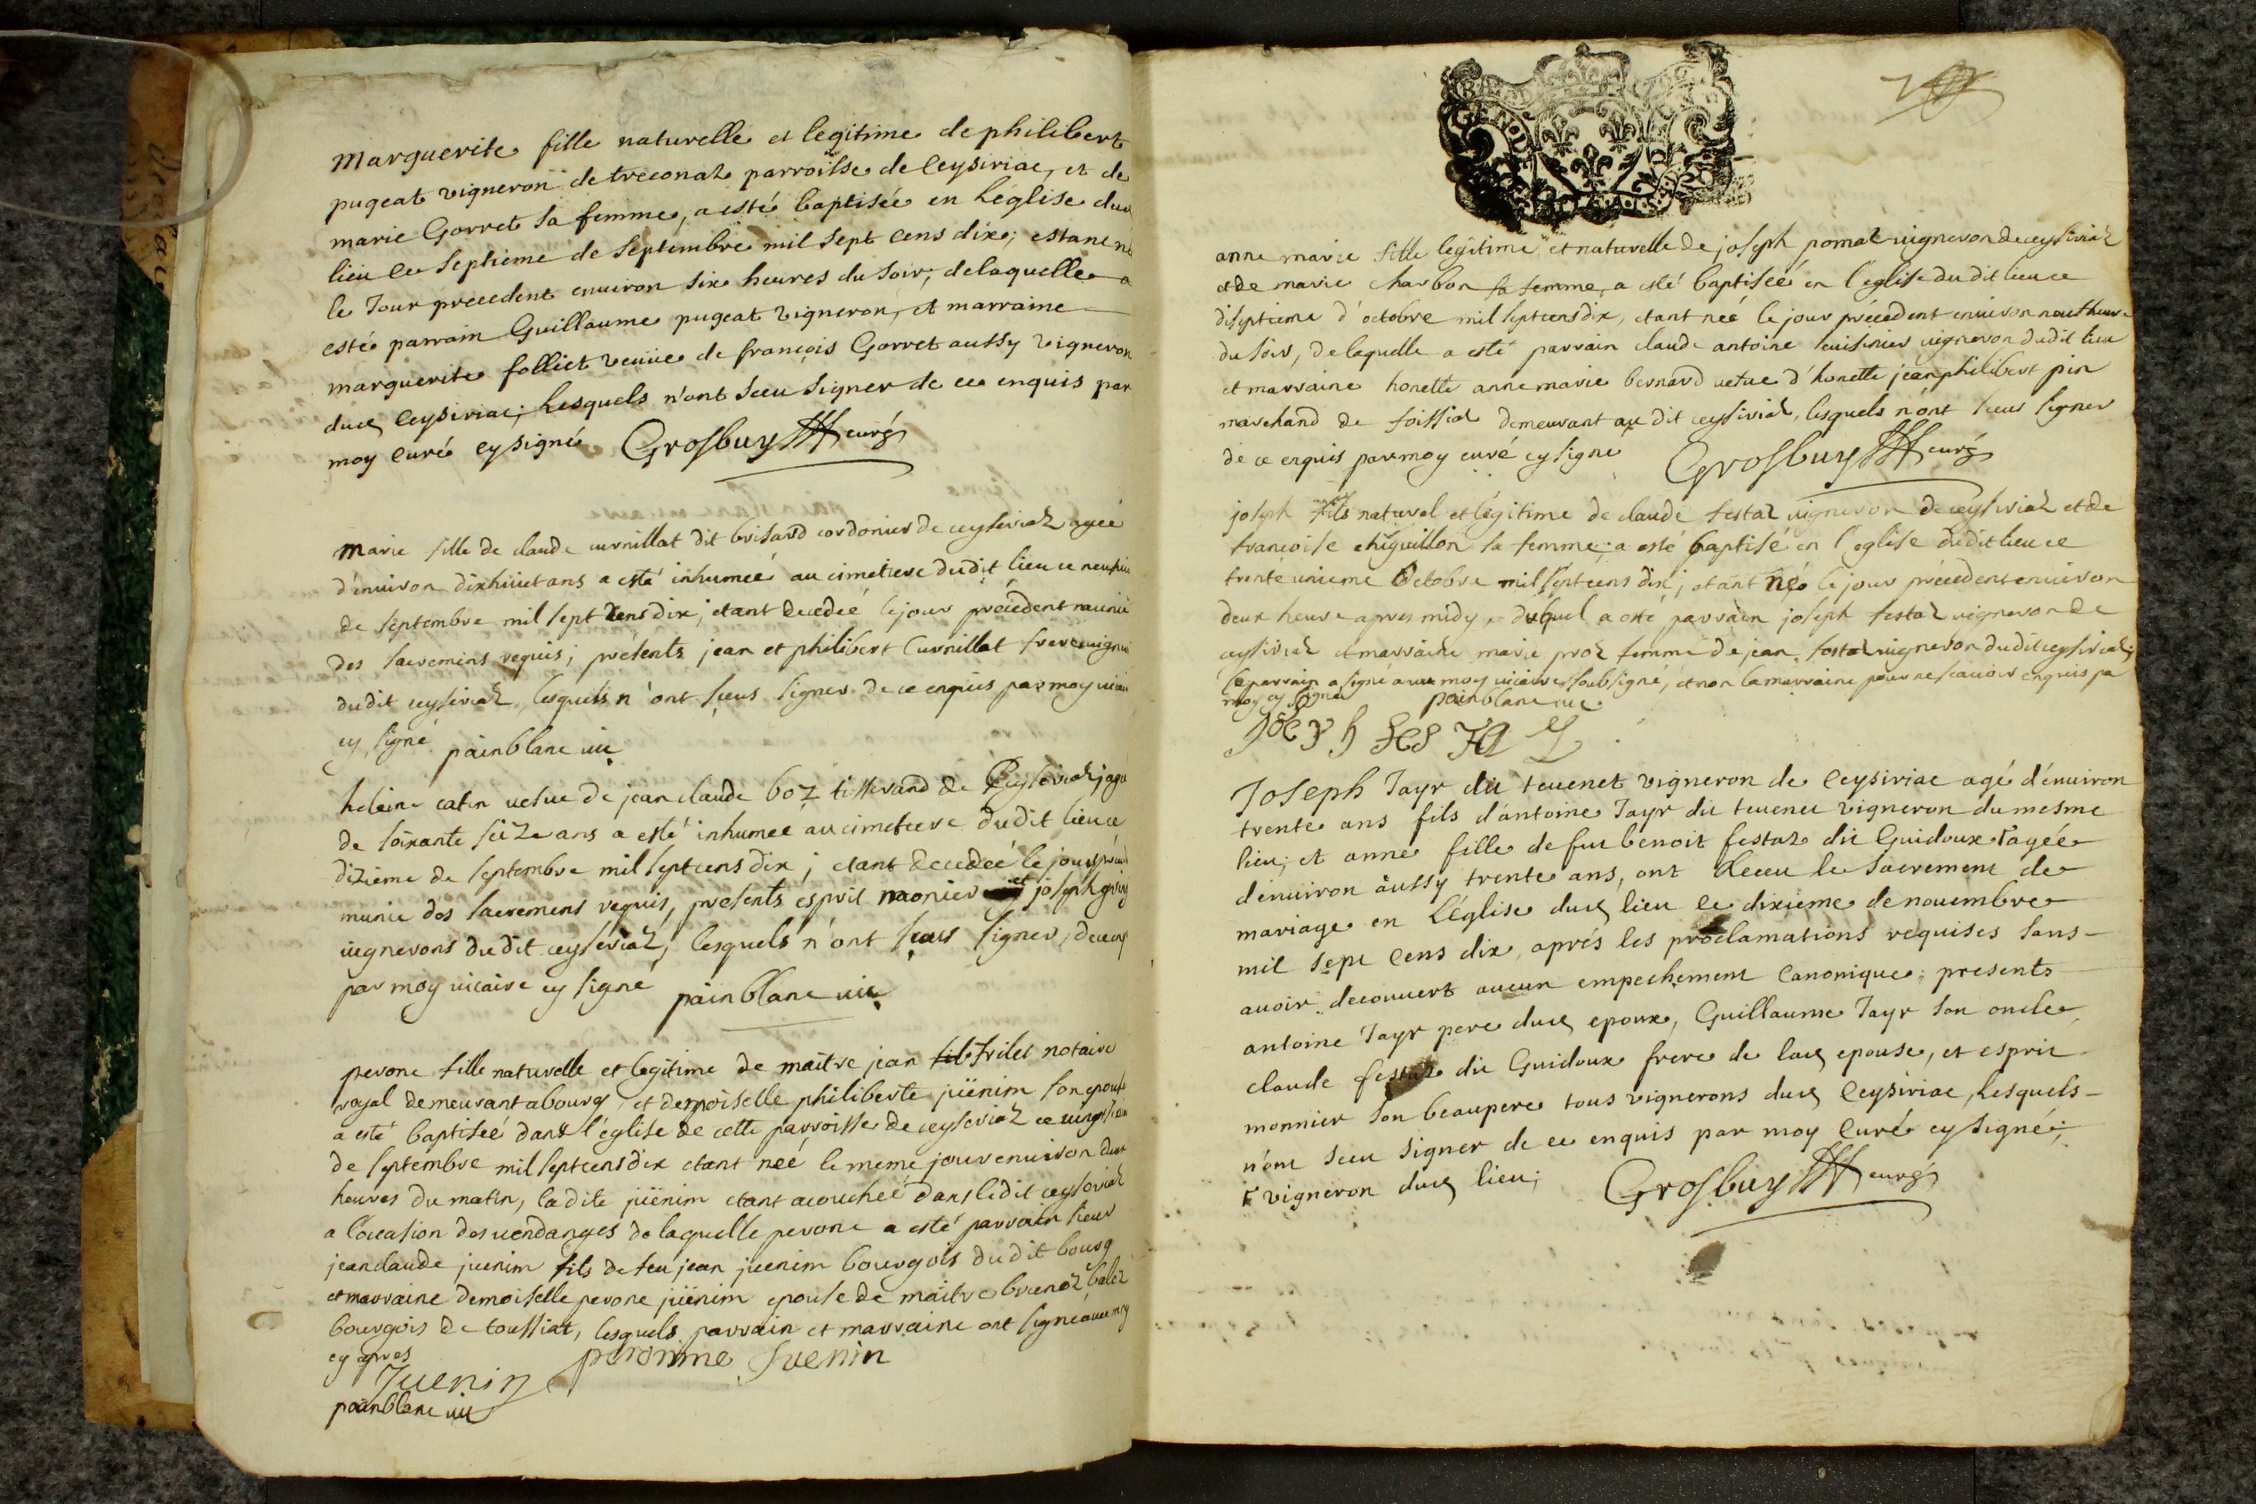 Marguerite fille naturelle et legitime de philibert
pugeat vigneron de treconaz parroisse de Ceysiriac, et de
marie Gorret sa femme, a esté baptisée en L'église dud
lieu le septieme de septembre mil sept cens dix; estant né
le Jour precedent environ six heures du soir, de laquelle a
esté parrain Guillaume pugeat vigneron, et marraine
marguerite folliet veuüe de françois Gorret aussy vigneron
dud Ceysiriac; Lesquels n'ont sceu signer de ce enquis par
moy Curé cy signé Grosbuy curé
Marie fille de claude curnillat dit brisard cordonier de ceyseriaz ageé
d'environ dixhuict ans a esté inhumeé au cimetiere dudit lieu ce
de septembre mil sept cens dix; etant decedeé le jour précédent munie
des sacremens requis; présents jean et philibert Curnillat freres
dudit ceyseriaz, lesquels n'ont sceus signer de ce enquis par moy
cy signé painblanc vic
heleine catin vefve de jean claude boz tisserand de Ceyseriaz
de soixante seize ans a esté inhumeé au cimetiere dudit lieu ce
dizieme de septembre mil septcens dix; etant decedeé le jour
munie des sacremens requis, presents esprit monier et joseph
vignerons dudit ceyseriaz, lesquels n'ont sceus signer, de ce
par moy vicaire cy signé painblanc vic
perone fille naturelle et legitime de maître jean frilet notaire
royal demeurant a bourg, et demoiselle philiberte jüenim son epouse
a esté baptiseé dans l'église de cette parroisse de ceyseriaz ce
de septembre mil septcens dix etant neé le meme jour environ deux
heures du matin, ladite jüenim etant acoucheé dans ledit ceyseriaz
a l'ocasion des vendanges de laquelle perone a esté parrain sieur
jean claude juenim fils de feu jean juenim bourgois dudit bourg
et marraine demoiselle perone jüenim epouse de maitre
bourgois de toussiat, lesquels parrain et marraine ont signé avec moy
cy apres peronne Juenin
Juenin
painblanc vic
anne marie fille legitime et naturelle de joseph pomat vigneron de ceysiriaz
et de marie charbon sa femme, a esté baptiseé en l'eglise du dit lieu ce
diseptieme d'octobre mil septcens dix, etant neé le jour précédent environ neuf heure
du soir, de laquelle a esté parrain claude antoine cuisinier vigneron dudit lieu
et marraine honette anne marie bernard vefve d'honette jean philibert pin
marchand de foissiat demeurant au dit ceysiriaz, lesquels n'ont sceus signer
de ce enquis par moy curé cy signé Grosbuy curé
joseph fils naturel et légitime de claude festaz vigneron de ceysiriaz et de
francoise chiguillon sa femme; a esté baptisé en l'eglise dudit lieu ce
trente unieme Octobre mil septcens dix; etant né le jour précedent environ
deux heure apres midy, duquel a esté parrain joseph festaz vigneron de
ceysiriaz et marraine marie proz femme de jean festaz vigneron dudit ceysiriaz
le parrain a signé avec moy vicaire soubsigné, et non la marraine pour ne scavoir enquis pa
moy cy signé painblanc vic
Joseph Jayr dit tevenet vigneron de Ceysiriac agé d'environ
trente ans fils d'antoine Jayr dit tevenet vigneron du mesme
lieu; et anne fille de fut benoit festaz dit Guidoux agée
d'environ aussy trente ans, ont Receu le sacrement de
mariage en L'église dud lieu ce dixieme de novembre
mil sept cens dix, aprés les proclamations requises sans
avoir decouvert aucun empechement Canonique; presents
antoine Jayr pere dud epoux, Guillaume Jayr son oncle,
claude festaz dit Guidoux frere de lad epouse, et esprit
monnier son beaupere tous vignerons dud Ceysiriac, Lesquels
n'ont sceu signer de ce enquis par moy Curé cy signé;
vigneron dud lieu; Grosbuy curé